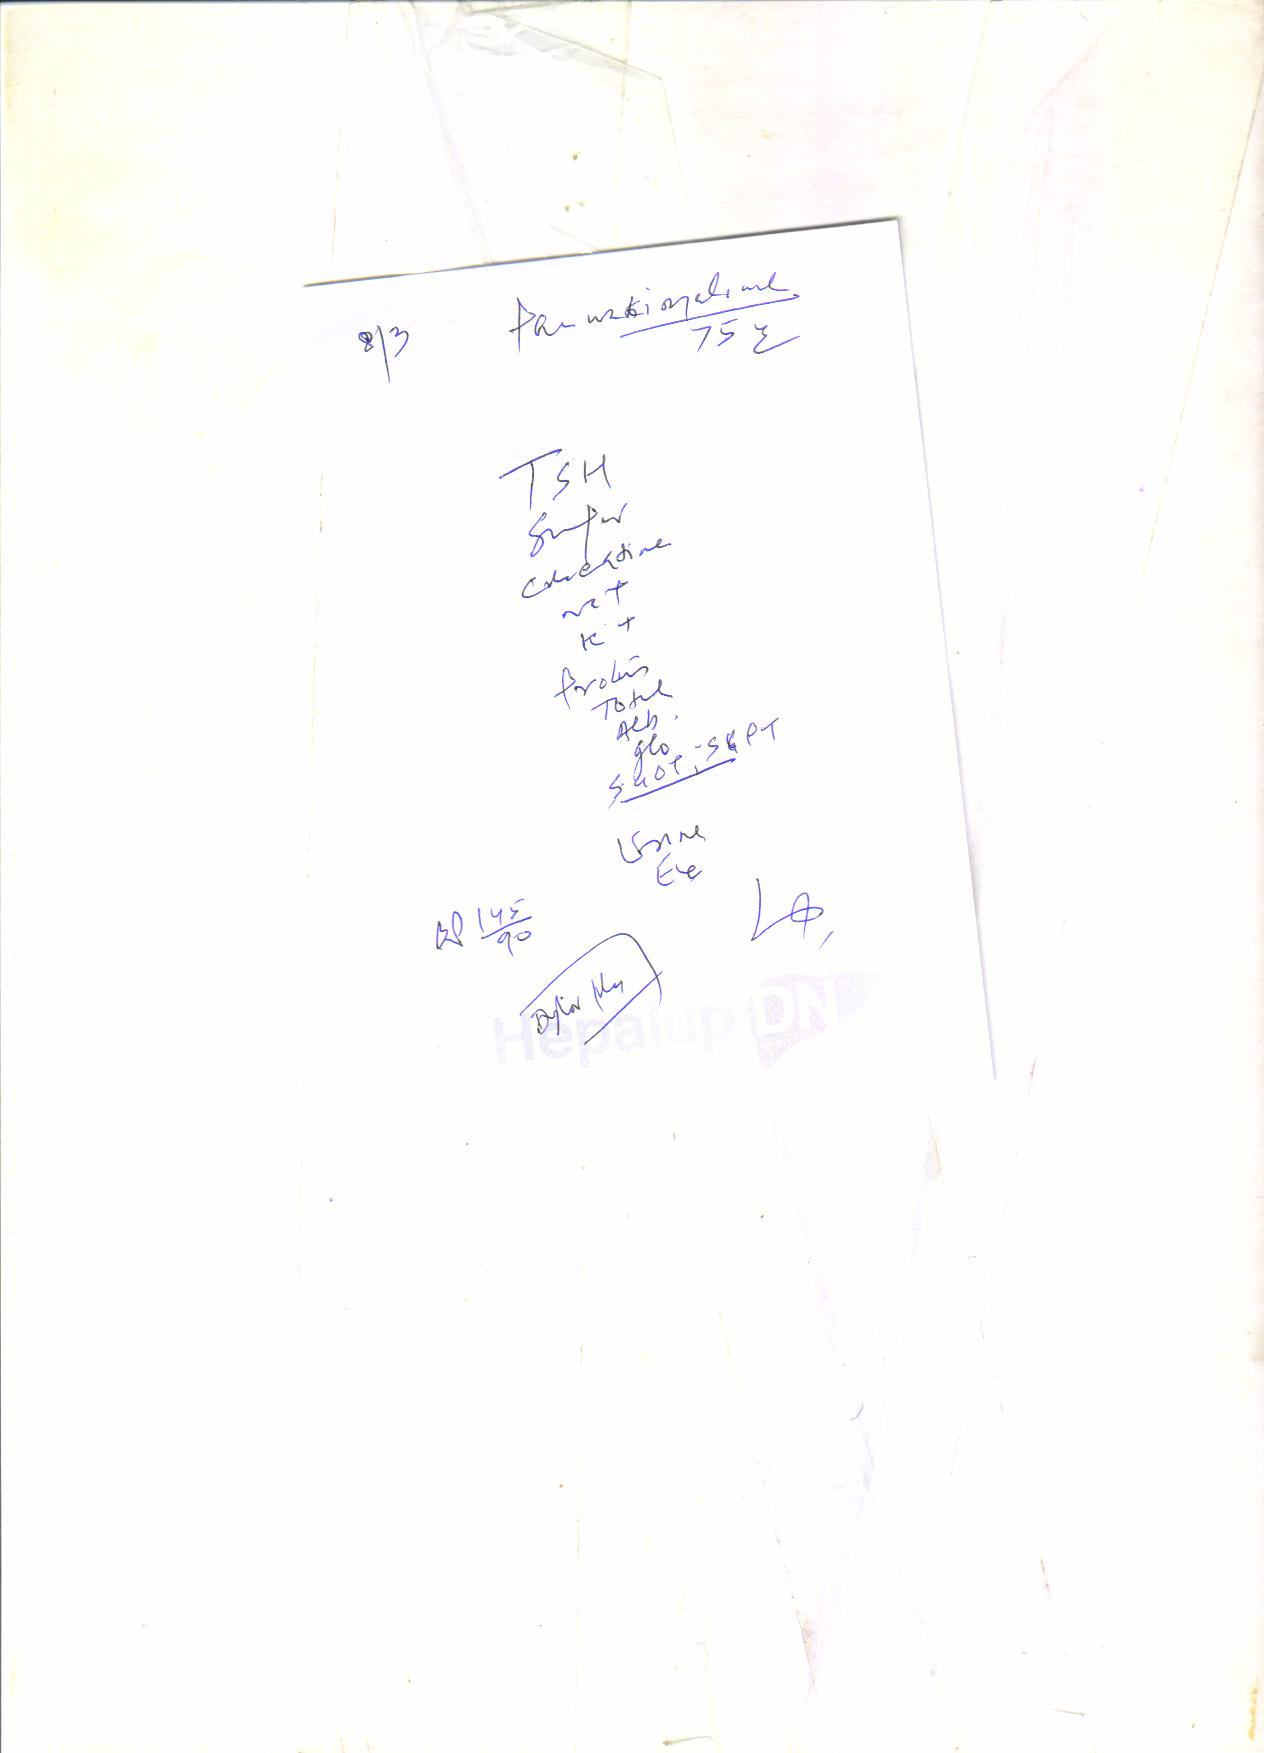 8/3
75
TSH
Sugar
Creatine
Na+
K+
Protein
Total
Alb.
glo
SGOT, SGPT
Urine
BP 145/90
Hepalup DN